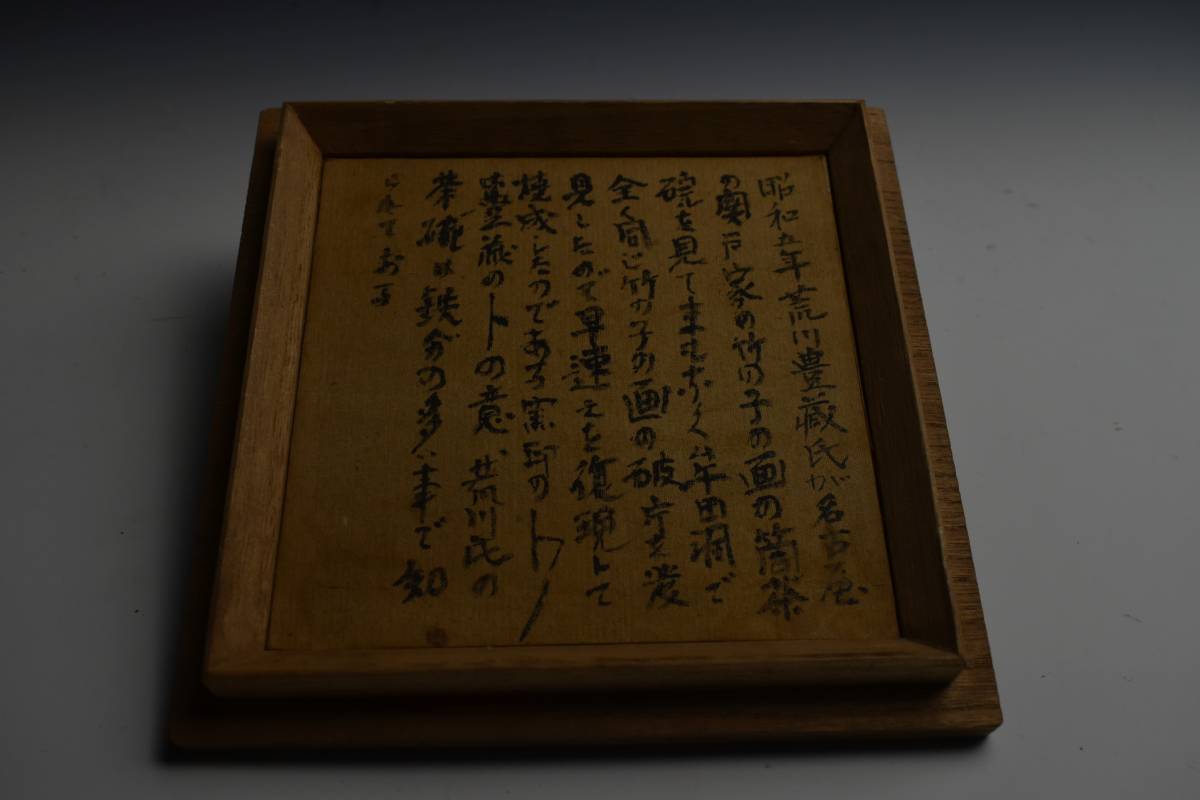 昭和五年荒川豊蔵氏が名古屋
の関戸家の竹の子の画の筒茶
碗を見て まもなく牟田洞で
全く同じ竹の子の画の破片を発
見したので早速之を復現して
焼成したのである窯印のト
豊蔵のトの意 荒川氏の
茶碗は鉄分の多い事で知